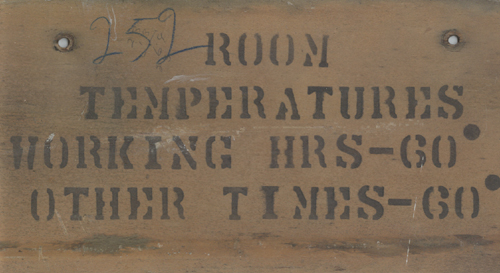 252 ROOM
TEMPERATURES
WORKING HRS-60°
OTHER TIMES-60°